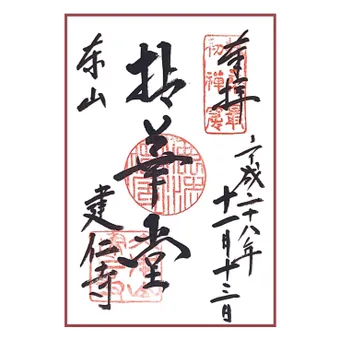 奉拝
平成二十八年
十一月十三日
拈華堂
東山
建仁寺